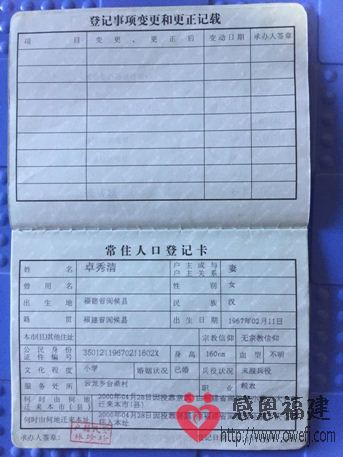 登记事项变更和更正记载
项 目 变更、更正后 变动日期 承办人签章
常住人口登记卡
姓名 卓秀清 户主或与户主关系 妻
曾用名 性别 女
出生地 福建省闽侯县 民族 汉
籍贯 福建省闽侯县 出生日期 1967年02月11日
本市(县)其他住址 宗教信仰 无宗教信仰
公民身份证件编号 身高 160cm 血型 不明
文化程度 小学 婚姻状况 已婚 兵役状况 未服兵役
服务处所 职业 粮农
何时由何地迁来本市(县) 2000年04月28日因
何时由何地迁来本址 2000年04月28日因
承办人签章
感恩福建
www.owefj.com